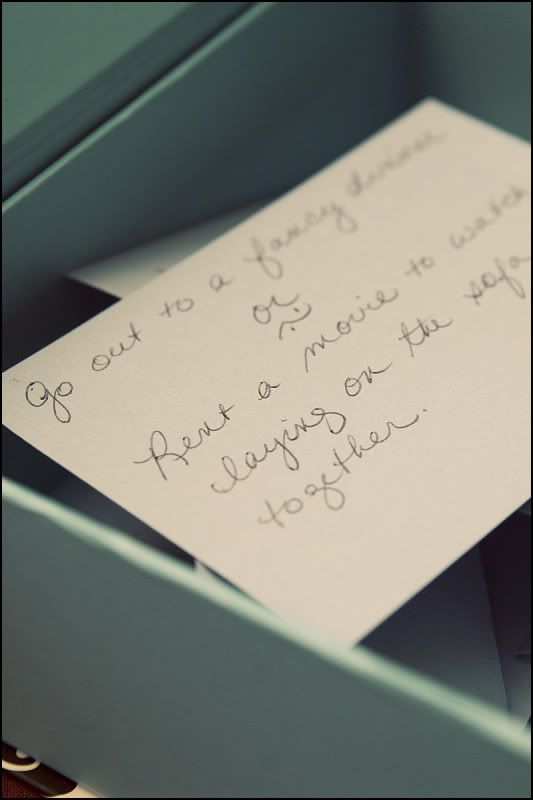 Go out to a fancy dinner
or
Rent a movie to watch
laying on the sofa
together.